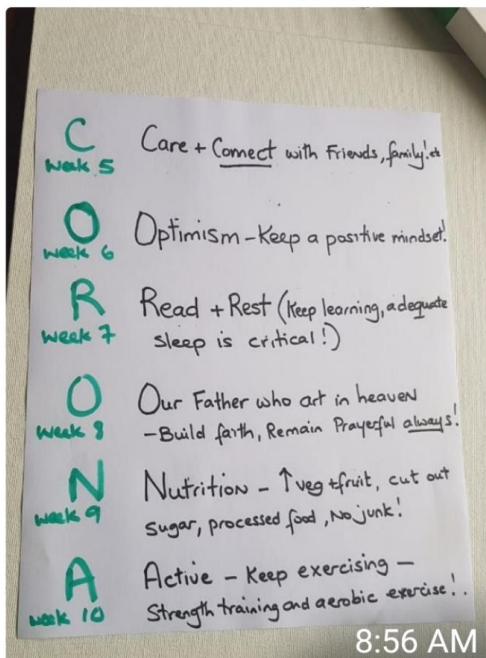 C Care + Connect with Friends, family! etc
week 5
O Optimism - Keep a positive mindset!
week 6
R Read + Rest (Keep learning, adequate
week 7 sleep is critical!)
O Our Father who art in heaven
week 8 - Build faith, Remain Prayerful always!
N Nutrition - ↑ veg + fruit, cut out
week 9 sugar, processed food, No junk!
A Active - Keep exercising -
week 10 Strength training and aerobic exercise!..
8:56 AM